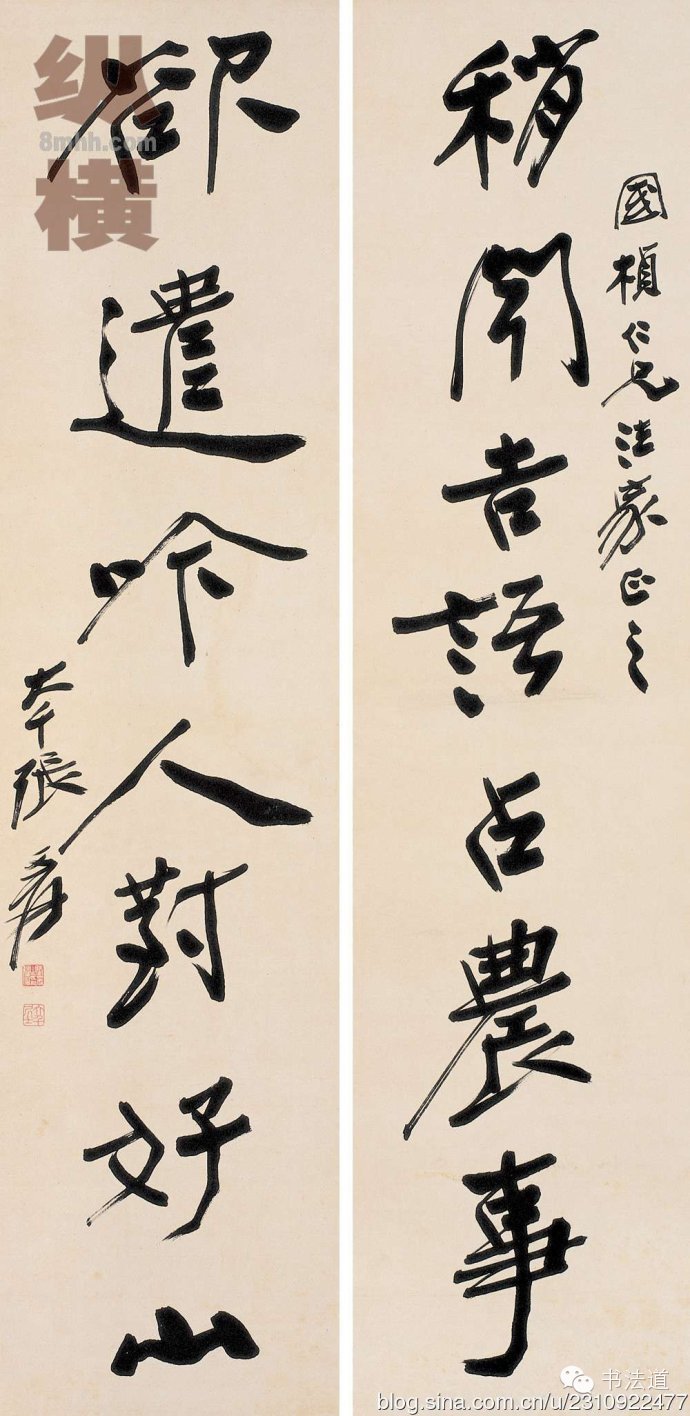 國楨仁兄法家正之
稍聞吉語占農事
卻遣吟人對好山
大千張爰
纵横
8mhh.com
书法道
blog.sina.com.cn/u/2310922477